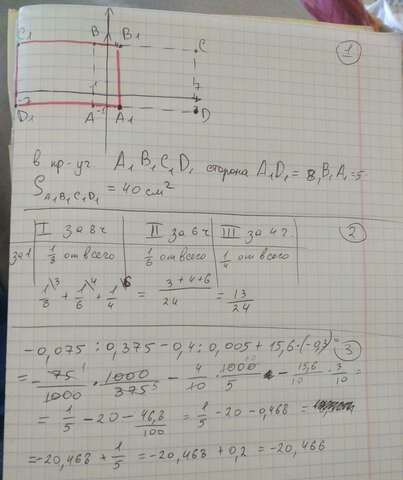 C₁ B B₁ C
1
-7 7
D₁ A -1 A₁ D
1
в пр-уг. A₁B₁C₁D₁ сторона A₁D₁ = 8, B₁A₁ = 5
S A₁B₁C₁D₁ = 40 см²
I за 8ч II за 6ч III за 4ч 2
за 1 1/8 от всего 1/6 от всего 1/4 от всего
1/8 \3 + 1/6 \4 + 1/4 \6 = 3+4+6/24 = 13/24
-0,075 : 0,375 - 0,4 : 0,005 + 15,6 · (-0,3) = 3
= - 75 1/1000 · 1000/375 5 - 4/10 · 1000/5 - 15,6/10 · 3/10 =
= 1/5 - 20 - 46,8/100 = 1/5 - 20 - 0,468 =
= -20,468 + 1/5 = -20,468 + 0,2 = -20,466